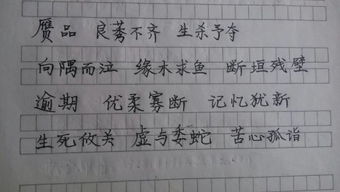 赝品 良莠不齐 生杀予夺
向隅而泣 缘木求鱼 断垣残壁
逾期 优柔寡断 记忆犹新
生死攸关 虚与委蛇 苦心孤诣